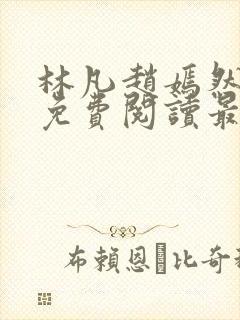 林凡趙嫣然
免費閱讀最
布賴恩 比奇